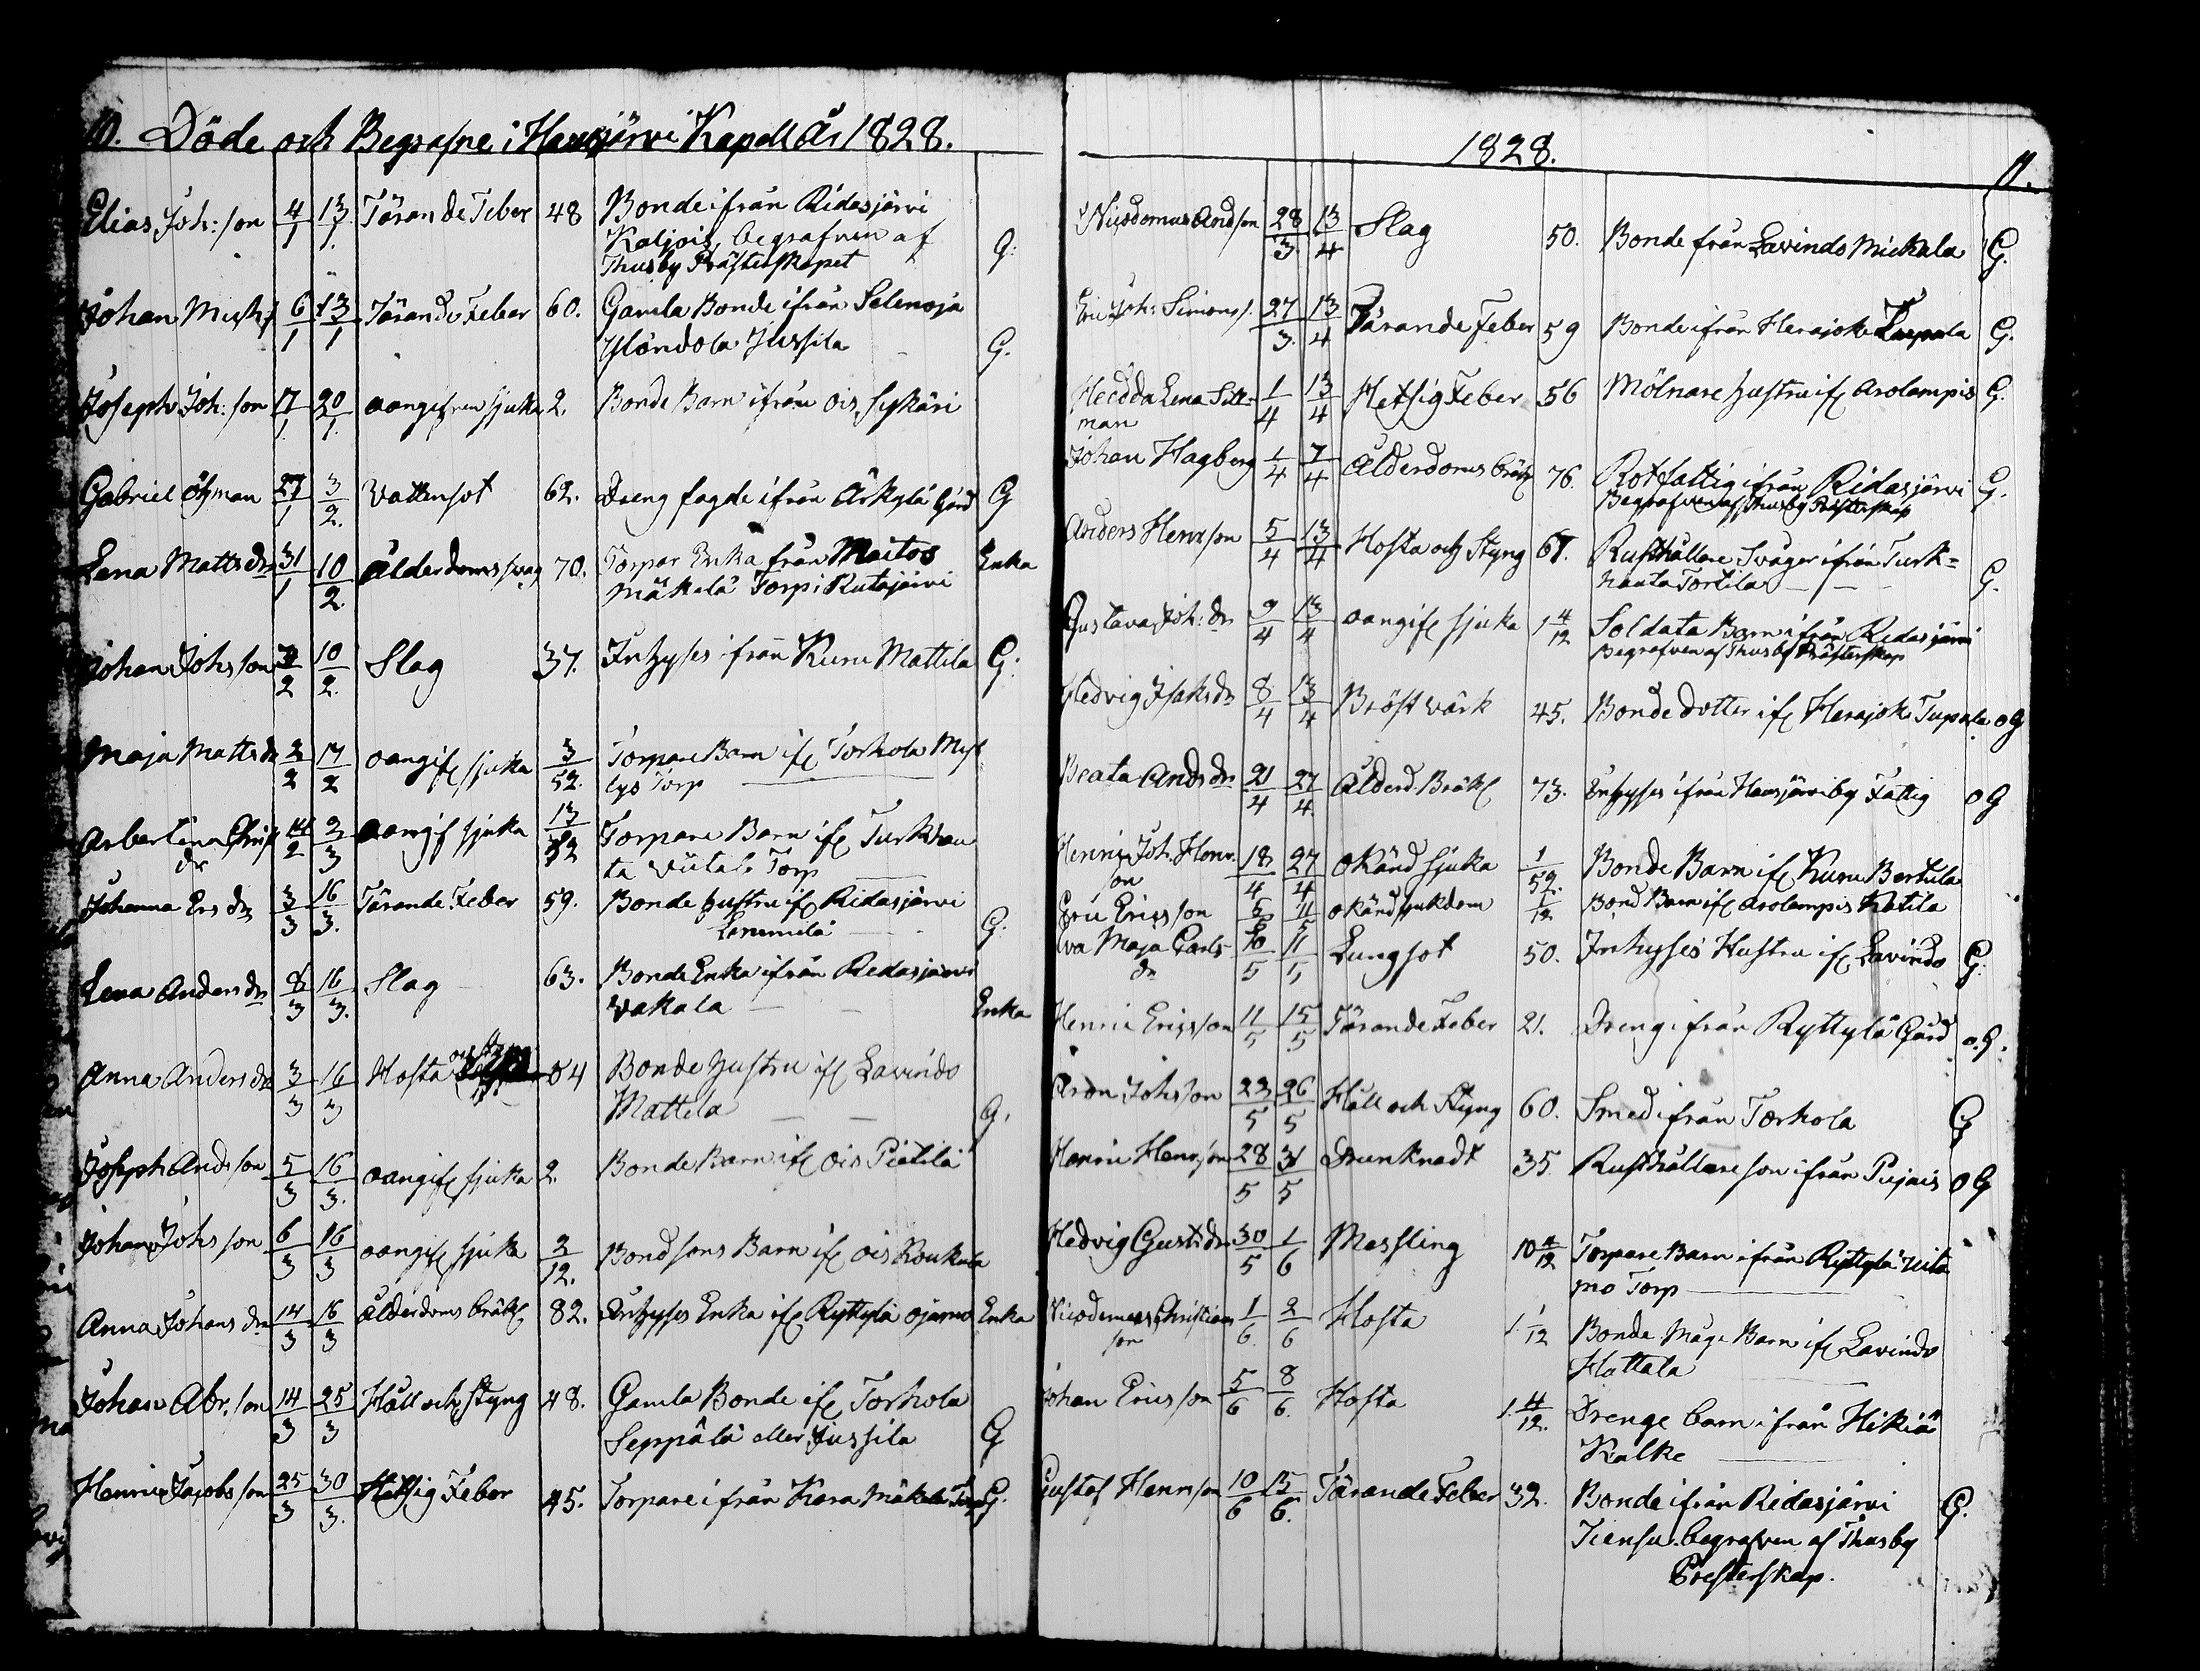 10. Döde och Begrafne i Hausjärvi Kapell År 1828.
Elias Joh: son 4/1 13/1. Tärande Feber 48 Bonde ifrån Ridasjärvi
Kaljois, begrafven af
Thusby Prästerskapet G.
Johan Mich 6/1 13/1 Tärande Feber 60. Gamla Bonde ifrån Selenoja
Ylöndola Jussila G.
Joseph Joh: son 17/1. 20/1. oangifven sjuka 2. Bonde Barn ifrån Ois, Sykäri
Gabriel Öhman 27/1 3/2. Vattensot 62. Dreng fogde ifrån Ärkylä Gård G
Lena Matts dr 31/1 10/2. Ålderdoms svag 70. Torpar Enka från Maitos
Mäkelä Torp i Rutajärvi Enka
Johan Johs son 2/2 10/2. Slag 37. Inhyses ifrån Kuru Mattila G.
Maja Matts dr 2/2 17/2 oangif sjuka 3/52. Torpare Barn if Torhola
lys Torp
Arbertina Christ 14/2 2/3 oangif sjuka 13/52 Torpare Barn if Turkhau
dr ta Viitala Torp
Johanna Ers dr 3/3 16/3. Tärande Feber 59. Bonde hustru if Ridasjärvi
Lemmilä G.
Lena Anders dr 8/3 16/3. Slag 63. Bonde Enka ifrån Ridasjärvi
Vakala Enka
Anna Anders dr 3/3 16/3 Hosta 54 Bonde hustru if Lavindo
Mattila G.
Joseph Ands son 5/3 16/3. oangif sjuka 2. Bonde Barn if Ois Pietilä
Johan Johs son 6/3 16/3 oangif sjuka 2/12. Bondsons Barn if Ois Roukola
Anna Johans dr 14/3 16/3 Ålderdoms bräkl 82. Inhyses Enka if Ryttylä Ojamo Enka
Johan Abr. son 14/3 25/3 Håll och Styng 48. Gamla Bonde if Torhola
Seppälä eller Jussila G
Henric Jacobs son 25/3 30/3. Hetsig Feber 45. Torpare ifrån Kara Mäkelä Torp G.
1828. 11.
Nicodemus And son 28/3. 13/4 Slag 50. Bonde från Lavindo Mickala G.
Eric Joh: Simons s. 27/3. 13/4 Tärande Feber 59 Bonde ifrån Herajoki G.
Hedda Lena Sill= 1/4 13/4 Hetsig Feber 56 Mölnare hustru if Arolampis G.
man
Johan Hagberg 1/4 7/4 Ålderdoms bräkl 76. Rotfattig ifrån Ridasjärvi G.
Begrafven af Thusby Prästerskap
Anders Henr son 5/4 13/4 Hosta och Styng 67. Rusthållare Svåger ifrån Turk=
hauta Tortila G.
Gustava Joh: dr 9/4 13/4 oangif sjuka 1 4/12 Soldata Barn ifrån Ridasjärvi
Begrafven af Thusby Prästerskap
Hedvig Isaks dr 8/4 13/4 Bröst värk 45. Bonde dotter if Herajoki Tupala oG
Beata Ands dr 21/4 27/4. Ålderd. Bräkl 73. Inhyses ifrån Hausjärvi by Fattig oG
Henric Joh. Henr. 18/4 27/4 okänd sjuka 1/52. Bonde Barn if Kuru Bertula
son
Eric Erics son 5/5 11/5 okänd sjukdom 1/12 Bond Barn if Arolampis Katila
Eva Maja Carls 10/5 11/5 Lungsot 50. Inhyses Hustru if Lavindo G.
dr
Henric Erics son 11/5 15/5 Tärande Feber 21. Dreng ifrån Ryttylä Gård o.G.
Aron Johs son 23/5 26/5 Håll och Styng 60. Smed ifrån Torhola G
Henric Henr son 28/5 31/5 Drunknadt 35. Rusthållare son ifrån Pujais oG
Hedvig Gust: dr 30/5 1/6 Messling 10 4/12 Torpare Barn ifrån Ryttylä Uita
mo Torp
Nicodemus Christians 1/6. 2/6 Hosta 1. 1/12 Bonde Mågs Barn if Lavindo
son Hattala
Johan Erics son 5/6 8/6. Hosta 1. 4/12. Drenge barn ifrån Hikiä
Kalke
Gustaf Henr son 10/6 15/6. Tärande Feber 32. Bonde ifrån Ridasjärvi G.
Jiensu. begrafven af Thusby
Presterskap.